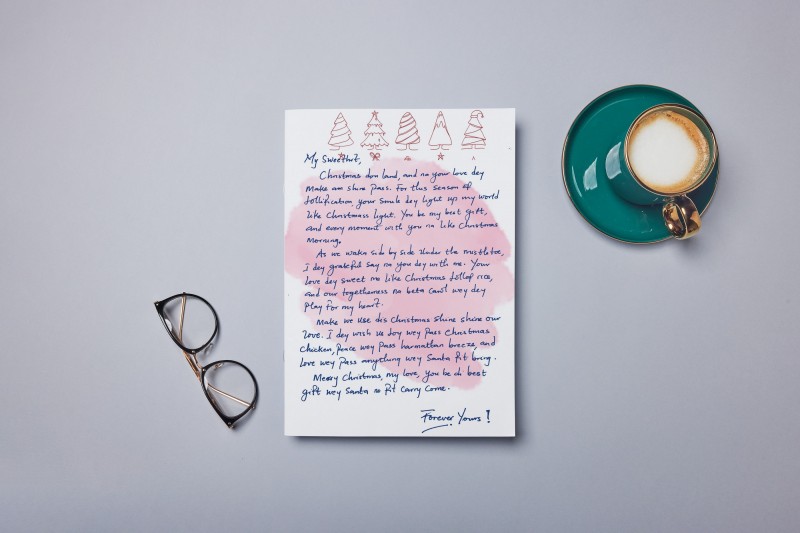 My Sweethrt,
Christmas don land, and na your love dey
make am shine pass. For this season of
Jollification, your smile dey light up my world
like Christmass light. You be my best gift,
and every moment with you na like Christmas
morning.
As we waka side by side under the mistletoe,
I dey grateful say na you dey with me. Your
love dey sweet me like Christmas Jollof rice,
and our togetherness na beta carol wey dey
play for my heart.
Make we use dis Christmas shine shine our
love. I dey wish us Joy wey pass Christmas
Chicken, Peace wey pass harmattan breeze, and
love wey pass anything wey Santa fit bring.
Merry Christmas, my love, you be di best
gift wey Santa no fit carry come.
Forever Yours!